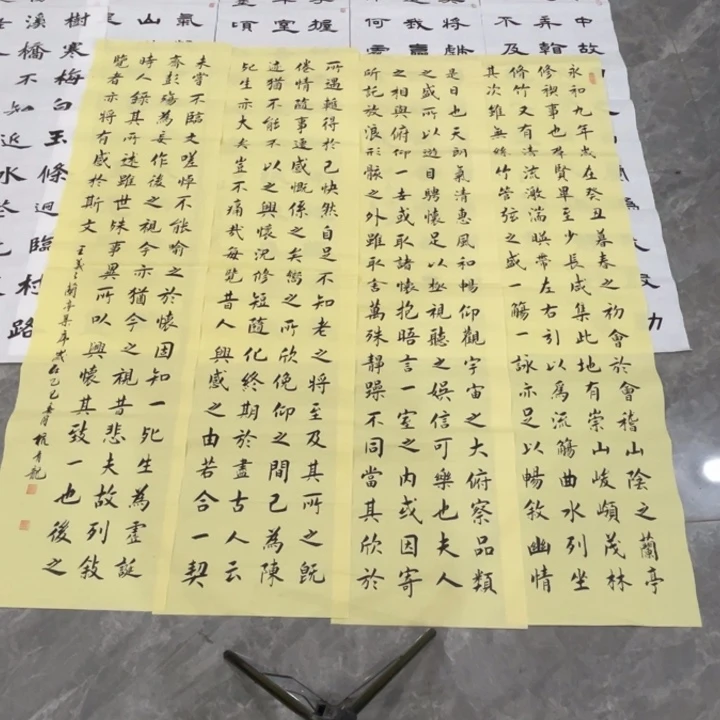 永和九年歲在癸丑暮春之初會於會稽山陰之蘭亭
修禊事也羣賢畢至少長咸集此地有崇山峻嶺茂林
脩竹又有清流激湍暎帶左右引以為流觴曲水列坐
其次雖無絲竹管弦之盛一觴一詠亦足以暢敘幽情
是日也天朗氣清惠風和暢仰觀宇宙之大俯察品類
之盛所以遊目騁懷足以極視聽之娛信可樂也夫人
之相與俯仰一世或取諸懷抱晤言一室之內或因寄
所託放浪形骸之外雖取舍萬殊靜躁不同當其欣於
所遇輒得於己快然自足不知老之將至及其所之既
倦情隨事遷感慨係之矣嚮之所欣俛仰之間已為陳
迹猶不能不以之興懷況修短隨化終期於盡古人云
死生亦大矣豈不痛哉每覽昔人興感之由若合一契
未嘗不臨文嗟悼不能喻之於懷因知一死生為虛誕
齊彭殤為妄作後之視今亦猶今之視昔悲夫故列敘
時人錄其所述雖世殊事異所以興懷其致一也後之
覽者亦將有感於斯文
王羲之蘭亭集序歲在乙巳春月
中故
弄翰
不及
將
我
何
握
室
頃
氣
山
樹寒梅白玉條迥臨村路
溪橋不知近水